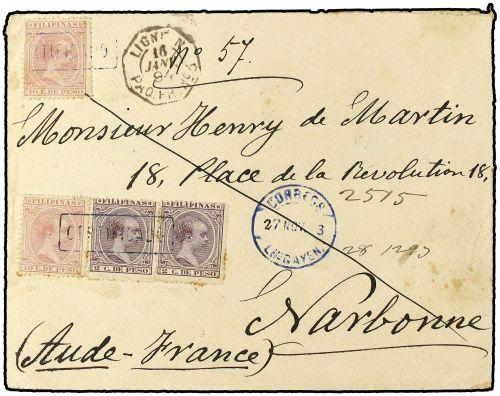 FILIPINAS
CERTIFICADO
10 C. DE PESO
LIGNE N
16
JANV
94
PAQ. FR.
No 57.
Monsieur Henry de Martin
18, Place de la Revolution 18,
2515
FILIPINAS FILIPINAS FILIPINAS
10 C. DE PESO 2 C. DE PESO 2 C. DE PESO
CORREOS
27 NOV 3
LINGAYEN.
28 1293
Narbonne
(Aude-France)